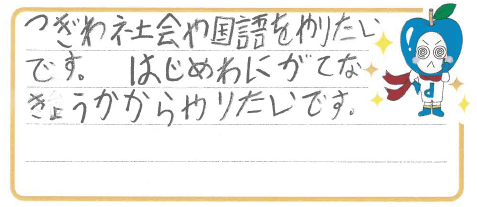 つぎわ社会や国語をやりたい
です。 はじめわにがてな
きょうかからやりたいです。
d